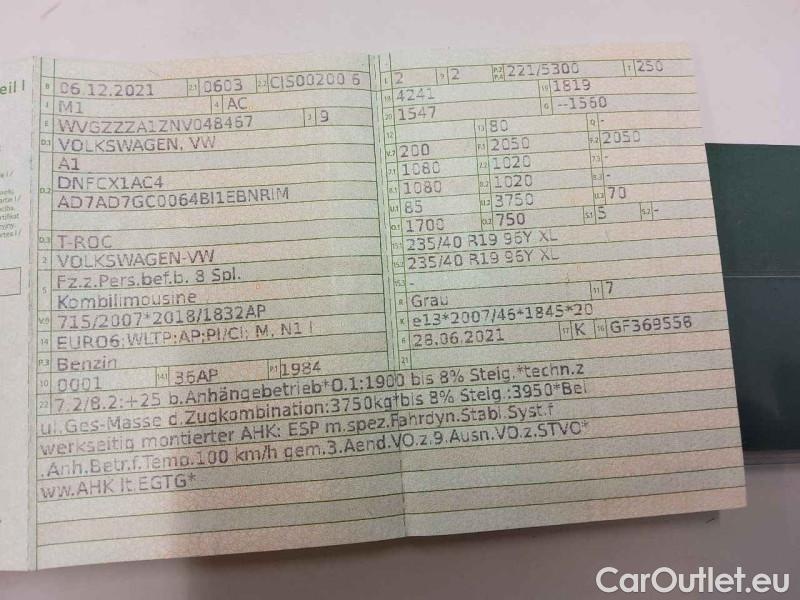 eil I
B 06.12.2021 2.1 0603 2.2 CJS00200 6
J M1 4 AC
E WVGZZZA1ZNV048467 3 9
D.1 VOLKSWAGEN, VW
A1
D.2 DNFCX1AC4
AD7AD7GC0064BI1EBNRIM
D.3 T-ROC
2 VOLKSWAGEN-VW
5 Fz.z.Pers.bef.b. 8 Spl.
Kombilimousine
V.9 715/2007*2018/1832AP
14 EURO6;WLTP;AP;PI/CI; M, N1 I
P.3 Benzin
10 0001 14.1 36AP P.1 1984
L 2 9 2 P.2 P.4 221/5300 T 250
18 4241 19 1819
20 1547 G --1560
12 13 80 Q -
V.7 200 F.1 2050 F.2 2050
7.1 1080 7.2 1020 7.3 -
8.1 1080 8.2 1020 8.3 -
U.1 85 U.2 3750 U.3 70
O.1 1700 O.2 750 S.1 5 S.2 -
15.1 235/40 R19 96Y XL
15.2 235/40 R19 96Y XL
15.3 -
R Grau 11 7
K e13*2007/46*1845*20
6 28.06.2021 17 K 16 GF369558
21
22 7.2/8.2:+25 b.Anhängebetrieb*O.1:1900 bis 8% Steig.*techn.z
ul.Ges-Masse d.Zugkombination:3750kg*bis 8% Steig.:3950*Bei
werkseitig montierter AHK: ESP m.spez.Fahrdyn.Stabi.Syst.f
.Anh.Betr.f.Temo.100 km/h gem.3.Aend.VO.z.9.Ausn.VO.z.STVO*
ww.AHK lt.EGTG*
CarOutlet.eu